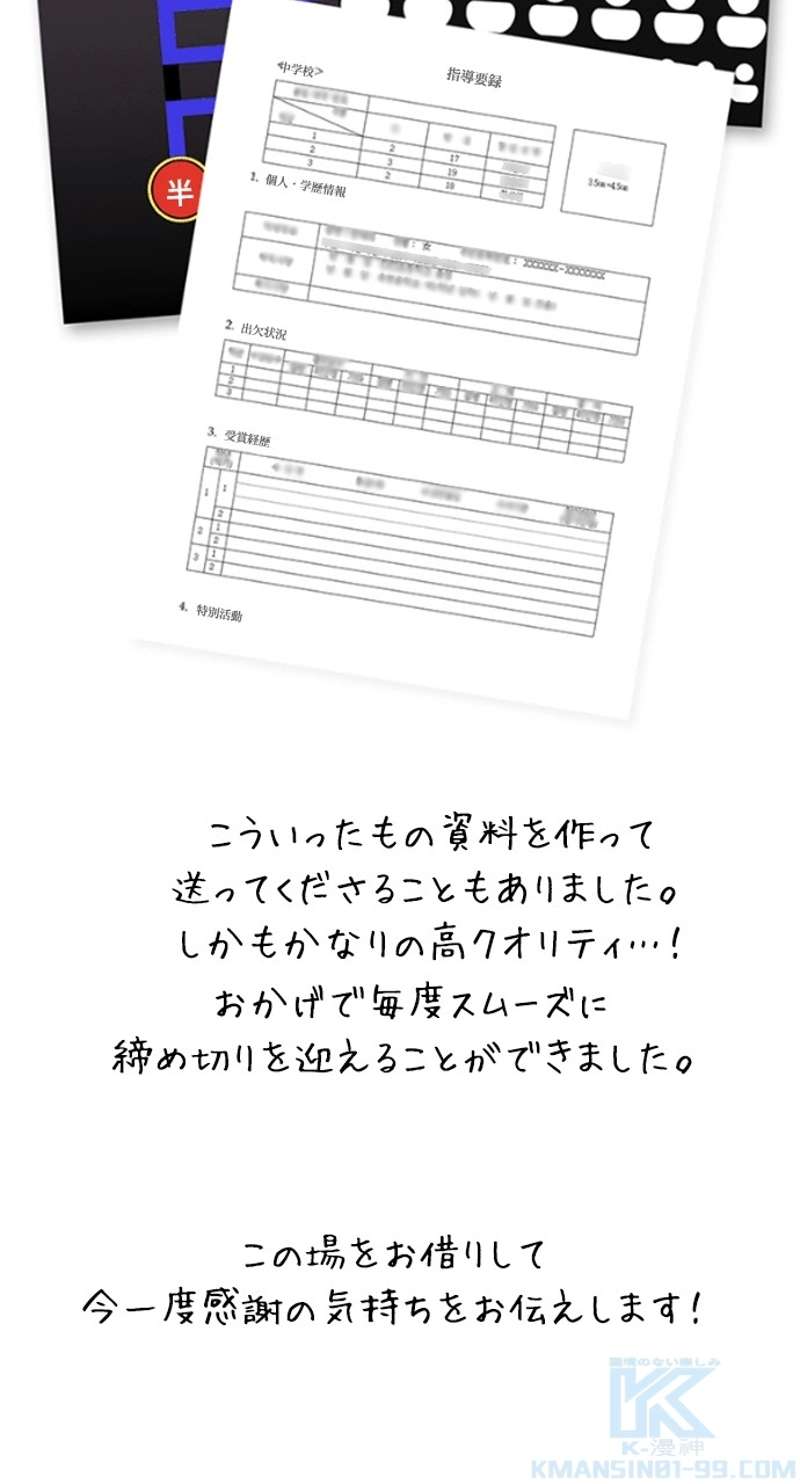 半
<中学校>
指導要録
1
2
17
2
3
19
3
2
18
3.5cm×4.5cm
1. 個人・学歴情報
：女
：XXXXXX-XXXXXXX
2. 出欠状況
1
2
3
3. 受賞経歴
1
1
2
2
1
2
3
1
2
4. 特別活動
こういったもの資料を作って
送ってくださることもありました。
しかもかなりの高クオリティ…!
おかげで毎度スムーズに
締め切りを迎えることができました。
この場をお借りして
今一度感謝の気持ちをお伝えします!
K-漫神
KMANSIN01-99.COM